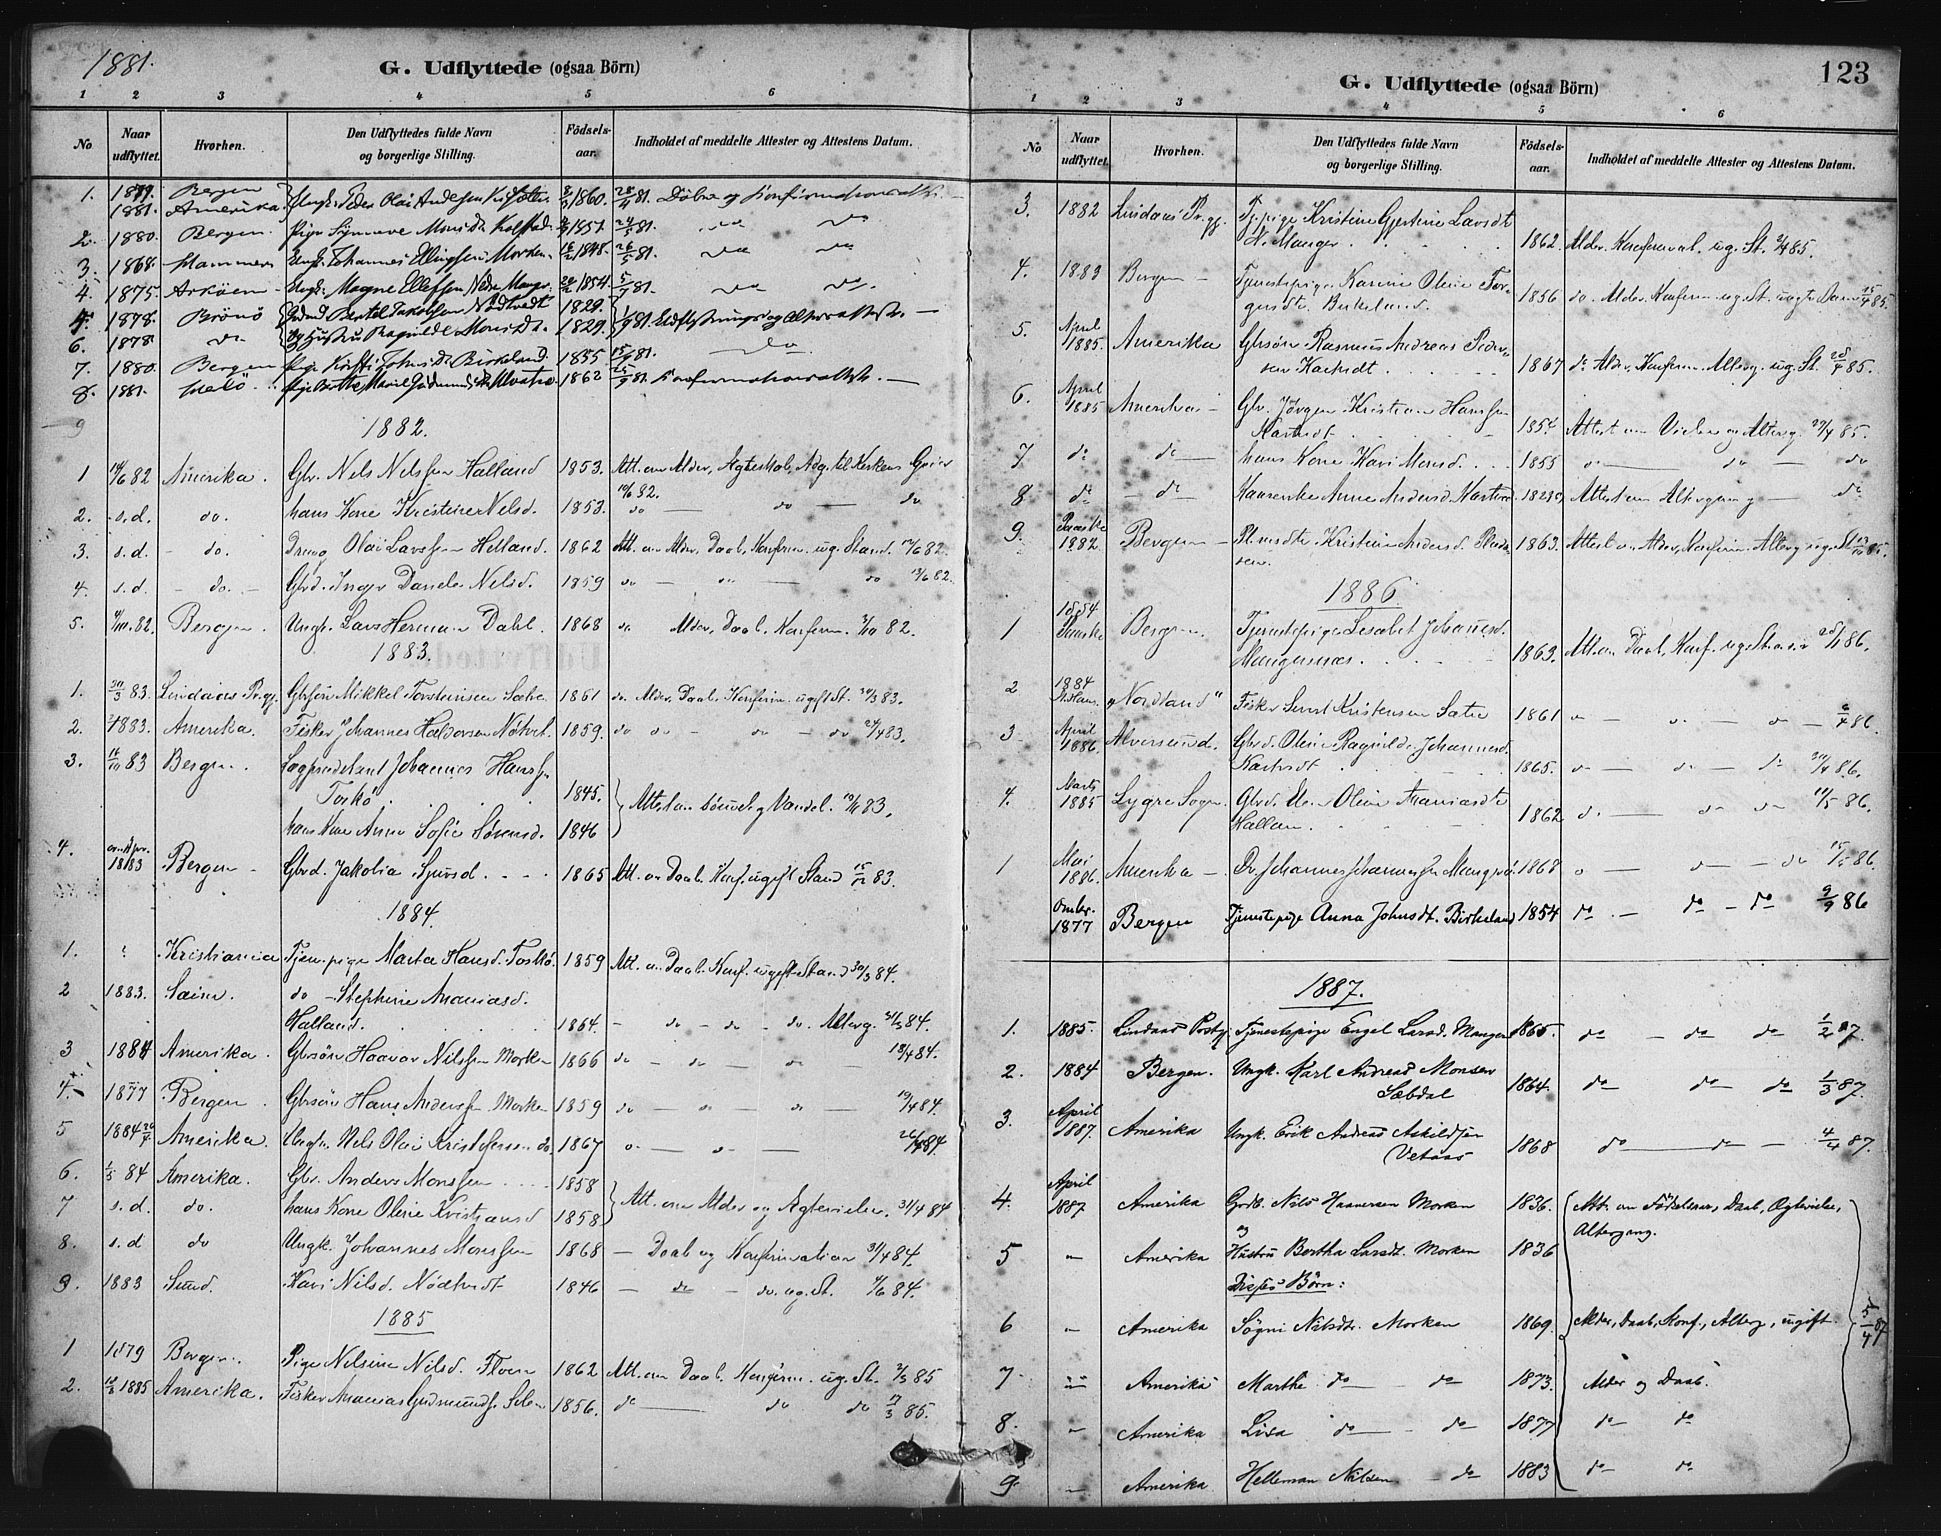 1881.
G. Udflyttede (ogsaa Börn)
1 2 3 4 5 6
No Naar udflyttet. Hvorhen. Den Udflyttedes fulde Navn og borgerlige Stilling. Födsels-aar. Indholdet af meddelte Attester og Attestens Datum.
1. 1879. Bergen
1881. Amerika. Ungk. Peder Olai Andersen 1860. 81. Daabs og Konfirmationsattest.
2. 1880. Bergen. Pige Synneve Monsdt. 1857. 81. do do
3. 1868. Hammers Ungk. Johannes Morken. 1848. 81. do do
4. 1875. Askøen Ungk. Magne Ellefsen Nedre Manger 1854. 81. do do.
5. 1878. Brönö Bertel Jakobsen Nödtvedt 1829.
6. 1878 do og Hustru Ragnilde Monsdt. 1829. 81. Udflytnings og Altersattest.
7. 1880. Bergen Pige Johnsdt. Birkeland. 1855 81. do
8. 1881. Pige Marie 1862 81. Konfirmationsattest.
9
1882.
1 14/6 82 Amerika. Gbr. Nels Nelssen Halland 1853. Att. om Alder, Ægteskab, Adg. til Kirkens Goder 10/6 82.
2. s.d. do. hans Kone Kristine Nelsd. 1853. do do do
3. s.d. do. Dreng Olai Larssen Helland. 1862 Att. om Alder, Daab, Konfirm. ug. Stand. 82.
4. s.d. do. Gbd. Inger Danele Nelsd. 1859 do do 13/6 82.
5. 82. Bergen. Ungk. Lars Herman Dahl. 1868 do. Alder, Daab. Konfirm. 82.
1883.
1. 20/3 83. Lindaas Pr.gj. Gbrsön Mikkel Torsteinsen Sætre 1861 do. Alder. Daab. Konfirm. ugift St. 83.
2. 1883. Amerika. Fisker Johannes Haldorsen Nötvet. 1859. do do do do 83.
3. 16/10 83 Bergen. Lægprædikant Johannes Hanss. Toskö. 1845.
hans Kone Anne Sofie Sörensd. 1846 Attest om og Vandel. 83.
4. 1883 Bergen Gbrd. Jakobia Sjursd. 1865 Att. om Daab. Konf. ugift Stand 15/12 83.
1884.
1. Kristiania Tjen. pige Marta Hansd. Toskö. 1859 Att. om Daab. Konf. ugift Stand 84.
2 1883. Saim. do Stephine Ananiasd. Halland. 1864. do do do. Alterg. 84.
3 1884 Amerika. Gbrsön Haavar Nilssen Morken 1866 do do do 18/4 84.
4. 1877 Bergen. Gbrsön Hans Anderss. Morken 1859 do do do 19/4 84.
5 1884 Amerika. Ungk. Nels Olai Kristofersen do. 1867 do do 26/4 84.
6. 1/5 84 Amerika. Gbr. Anders Monssen 1858
7 s.d. do. hans Kone Oline Kristiansd 1858 Att. om Alder og Ægtevielse. 84
8. s.d do Ungk. Johannes Monssen 1868 Daab og Konfirmation 84.
9. 1883 Sund. Kari Nilsd. Nödtvedt 1846 do do. ug. St. 84.
1885
1 1879 Bergen. Pige Nelsine Nilsd. Floen 1862 Att. om Daab. Konfirm. ug. St. 85
2. 1885 Amerika. Fisker Ananias Gudmunds. 1856. do do do 17/3 85.
123
G. Udflyttede (ogsaa Börn)
1 2 3 4 5 6
No Naar udflyttet Hvorhen. Den Udflyttedes fulde Navn og borgerlige Stilling. Födsels-aar. Indholdet af meddelte Attester og Attestens Datum.
3. 1882 Lindaas Pr.gj. Tj.pige Kristine Gjertine Larsdt N. Manger 1862. Alder. Konfirm. ug. St. 85.
4. 1883 Bergen Tjenestepige Karine Oline Torgersdt. Birkeland. 1856 do. Alder. Konfirm. ug. St. 85.
5. April 1885. Amerika Gbrsön Rasmus Andreas Pedersen Kartvedt 1867 do Alder, Konfirm. Alterg. ug. St. 85.
6. April 1885 Amerika Gbr. Jörgen Kristian Hanssen Kartvedt 1854 Attest om Vielse og Alterg. 85.
7 do do hans Kone Kari Monsd. 1855 do do do
8 do do Anne Andersd. Kartved Attest om Altergang do
9. 1882. Bergen Kristine Andersd. 1863. Attest om Alder, Konfirm. Alterg. ug. St 85.
1886
1 1884 Bergen. Tjenestepige Lisabet Johannesd. Mangersnes. 1863. Att. om Daab, Konf. ug. Stand 86.
2 1884 St. Hans. "Nordland" Fisker Kristensen Sætre 1861 do do do 86.
3 April 1886. Alversund. Gbrd. Oline Ragnilde Johannesd. Kartvedt 1865. do do do 86.
4. Marts 1885 Lygre Sogn Gbrd. Oline Ananiasdt. Halland. 1862 do. do do 86.
1 Mai 1886. Amerika Johannes Johannessen 1868 do do do 15/5 86.
Ombr. 1877 Bergen Tjenestepige Anna Johnsdt. Birkeland 1854 do do do 9/9 86
1887.
1. 1885. Lindaas Prstgj. Tjenestepige Engel Larsd. Manger 1865. do do do 1/2 87
2. 1884 Bergen. Ungk. Karl Andreas Monsen Sæbdal 1864. do do do 1/3 87.
3. April 1887. Amerika Ungk. Erik Andreas Askildsen Vetaas 1868 do do 4/4 87.
4. April 1887 Amerika Gbr. Nils Haaversen Morken 1836. Att. om Födselsaar, Daab, Ægtevielse, Altergang.
og
5 " Amerika Hustru Bertha Larsdt. Morken 1836
Disses Börn:
6 " Amerika Sögni Nilsdtr. Morken 1869. Alder, Daab, Konf., Alterg., ugift. 5/4 87
7 " Amerika Marthe do do 1873. Alder og Daab.
8. " Amerika Lisa do do 1877 do do
9. " Amerika Helleman Nilsen do 1883 do do